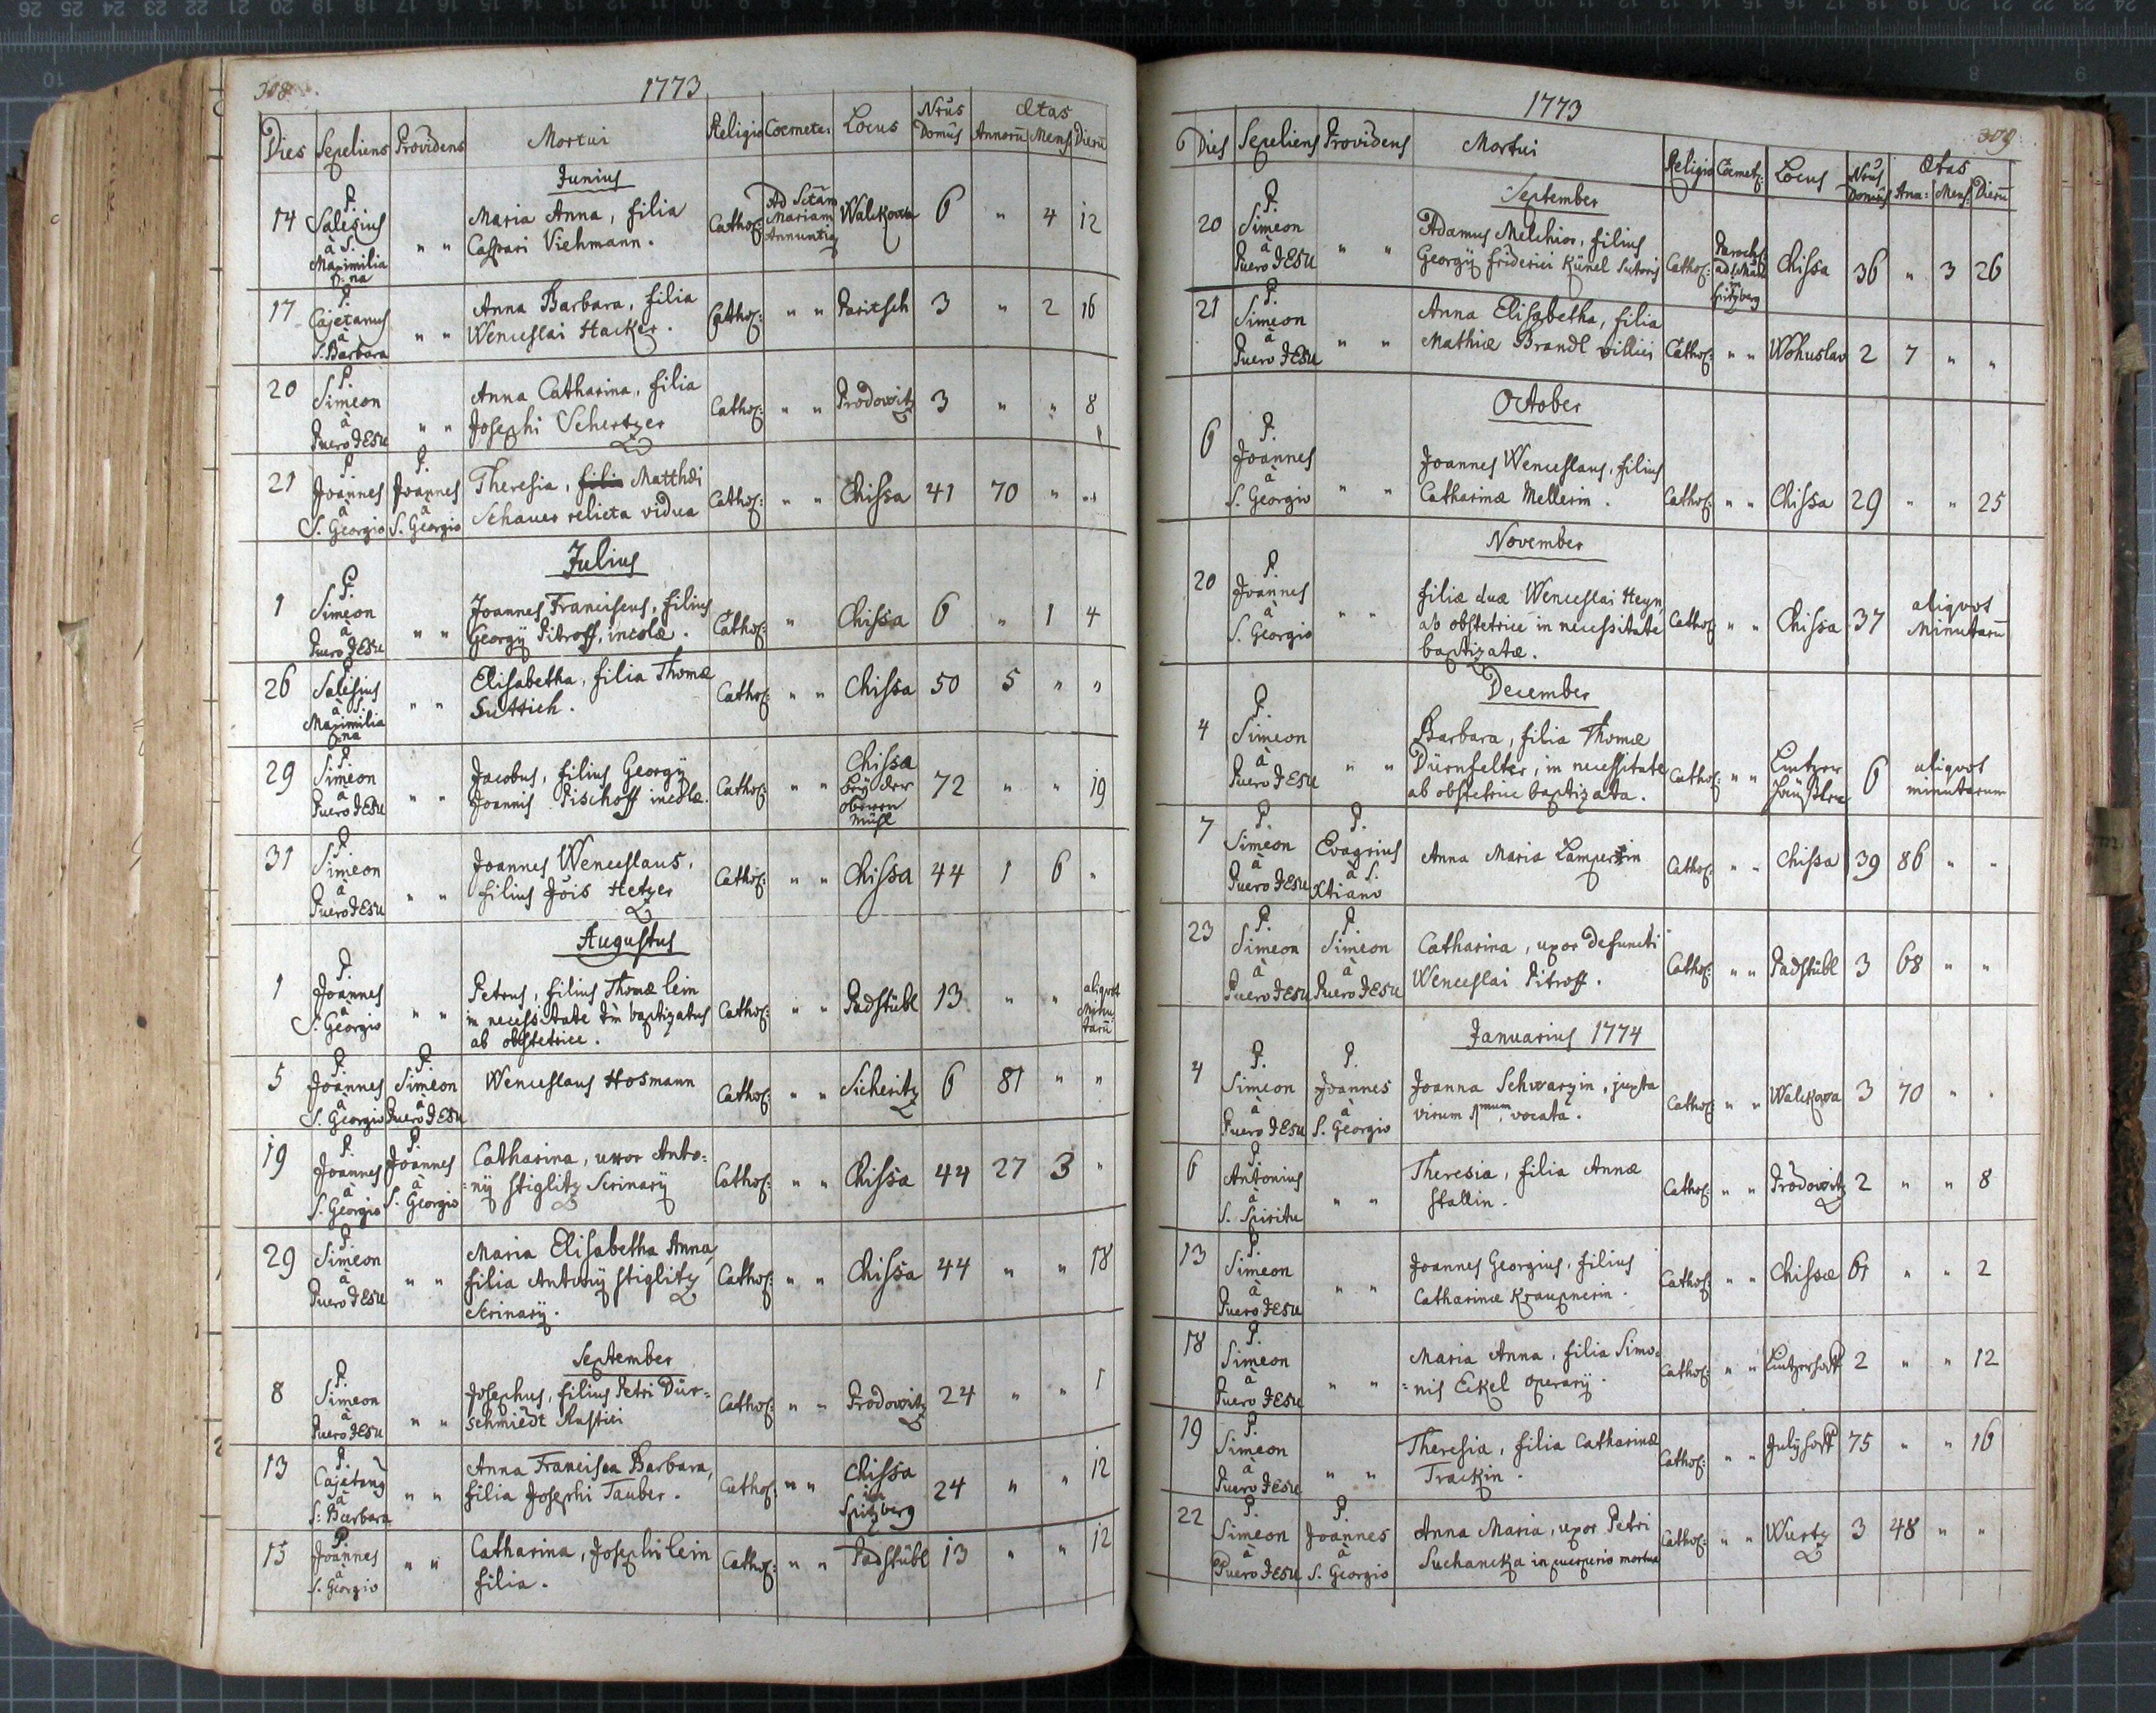 308
1773
Dies Sepeliens Providens Mortui Religio Cœmete: Locus Nrus Domûs Ætas Annorũ Mens: Dierũ
Junius
14 P. Salesius à S. Maximiliana " " Maria Anna, filia Cathol: Ad Sctam Mariam Annuntia Walckowa 6 " 4 12
Caspari Viehmann.
17 P. Cajetanus à S. Barbara " " Anna Barbara, filia Cathol: " " Paritsch 3 " 2 16
Wenceslai Hacker.
20 P. Simeon à Puero JEsu " " Anna Catharina, filia Cathol: " " Prodowitz 3 " " 8
Josephi Schertzer
21 P. Joannes à S. Georgio P. Joannes à S. Georgio Theresia, filia Matthæi Cathol: " " Chissa 41 70 " "
Schauer relicta vidua
Julius
1 P. Simeon à Puero JEsu " " Joannes Franciscus, filius Cathol: " Chissa 6 " 1 4
Georgÿ Pitroff, incolæ.
26 P. Salesius à S. Maximiliana " " Elisabetha, filia Thomæ Cathol: " " Chissa 50 5 " "
Suttich.
29 P. Simeon à Puero JEsu " " Jacobus, filius Georgÿ Cathol: " " Chissa beÿ der oberen Mühl 72 " " 19
Joannis Pischoff incolæ.
31 P. Simeon à Puero JEsu " " Joannes Wenceslaus, Cathol: " " Chissa 44 1 6 "
filius Jois Hetzer
Augustus
1 P. Joannes à S. Georgio " " Petrus, filius Thomæ Lein Cathol: " " Padstübl 13 " " aliqvot Minutarũ
in necessitate baptizatus
ab obstetrice.
5 P. Joannes à S. Georgio P. Simeon à Puero JEsu Wenceslaus Hosmann Cathol: " " Sicheritz 6 81 " "
19 P. Joannes à S. Georgio P. Joannes à S. Georgio Catharina, uxor Anto= Cathol: " " Chissa 44 27 3 "
=nÿ Stiglitz Scrinarÿ
29 P. Simeon à Puero JEsu " " Maria Elisabetha Anna, Cathol: " " Chissa 44 " " 18
filia Antonÿ Stiglitz
Scrinarÿ.
September
8 P. Simeon à Puero JEsu " " Josephus, filius Petri Dür= Cathol: " " Prodowitz 24 " " 1
schmiedt Rustici
13 P. Cajetanq à S. Barbara " " Anna Francisca Barbara, Cathol: " " Chissa in Spitzberg 24 " " 12
filia Josephi Tauber.
15 P. Joannes à S. Georgio " " Catharina, Josephi Lein Cathol: " " Padstübl 13 " " 12
filia.
1773
309
Dies Sepeliens Providens Mortui Religio Cœmet: Locus Nrus Domûs Ætas Ann: Mens: Dierũ
September
20 P. Simeon à Puero JEsu " " Adamus Melchior, filius Cathol: Chissa 36 " 3 26
Georgÿ Friderici Künel Sutoris Spitzberg
21 P. Simeon à Puero JEsu " " Anna Elisabetha, filia Cathol: " " Wohuslav 2 7 " "
Mathiæ Brandl villici
October
6 P. Joannes à S. Georgio " " Joannes Wenceslaus, filius Cathol: " " Chissa 29 " " 25
Catharinæ Mellerin.
November
20 P. Joannes à S. Georgio " " filiæ duæ Wenceslai Heyn, Cathol: " " Chissa 37 aliqvot Minutarũ
ab obstetrice in necessitate
baptizatæ.
December
4 P. Simeon à Puero JEsu " " Barbara, filia Thomæ Cathol: " " 6 aliqvot minutarum
Dürnfelter, in necessitate
ab obstetrice baptizata.
7 P. Simeon à Puero JEsu P. Evagrius à S. Xtiano Anna Maria Cathol: " " Chissa 39 86 " "
23 P. Simeon à Puero JEsu P. Simeon à Puero JEsu Catharina, uxor defuncti Cathol: " " Padstübl 3 68 " "
Wenceslai Pitroff.
Januarius 1774
4 P. Simeon à Puero JEsu P. Joannes à S. Georgio Joanna Schwarzin, juxta Cathol: " " Walckowa 3 70 " "
virum 1mum vocata.
6 P. Antonius à S. Spiritu " " Theresia, filia Annæ Cathol: " " Prodowitz 2 " " 8
Stallin.
13 P. Simeon à Puero JEsu " " Joannes Georgius, filius Cathol: " " Chissæ 61 " " 2
Catharinæ Kraupnerin.
18 P. Simeon à Puero JEsu " " Maria Anna, filia Simo= Cathol: " " 2 " " 12
=nis Eckel operarÿ.
19 P. Simeon à Puero JEsu " " Theresia, filia Catharinæ Cathol: " " 75 " " 16
Trackin.
22 P. Simeon à Puero JEsu P. Joannes à S. Georgio Anna Maria, uxor Petri Cathol: " " Wurtz 3 48 " "
Suchancka in puerperio mortua